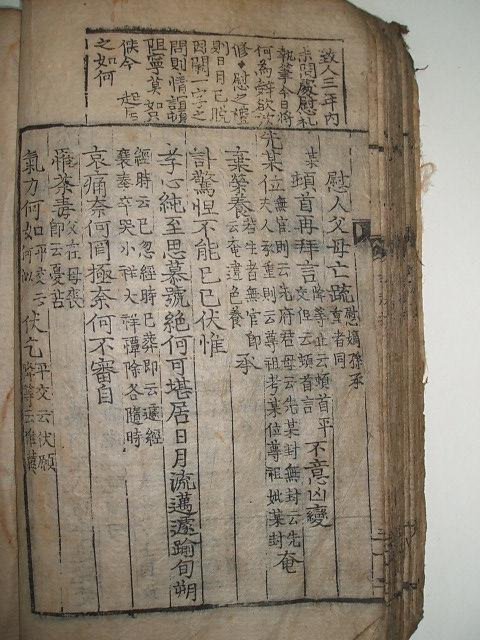 致人三年內
未問慰慰札
執筆今日將
何爲辭欲
修慰之禮
則日月已脫
因闕一字之
問則情誼頓
阻寧莫如只
候今 起居
之如何
慰人父母亡疏 慰嫡孫承
重者同
某頓首再拜言 降等止云頓首平
交但云頓首言 不意凶變
先某位 無官則云先府君母云先某封無封云先
夫人承重則云尊祖考某位尊祖妣某封 奄
棄榮養 若生者無官即
云奄違色養 承
訃驚怛不能已已伏惟
孝心純至思慕號絶何可堪居日月流邁遽踰旬朔
經時云已忽經時已葬即云遽經
襄奉卒哭小祥大祥禫除各隨時
哀痛奈何罔極奈何不審自
罹荼毒 父在母喪
即云憂苦
氣力何如 平交云
何似 伏乞 平交云伏願
降等云惟冀